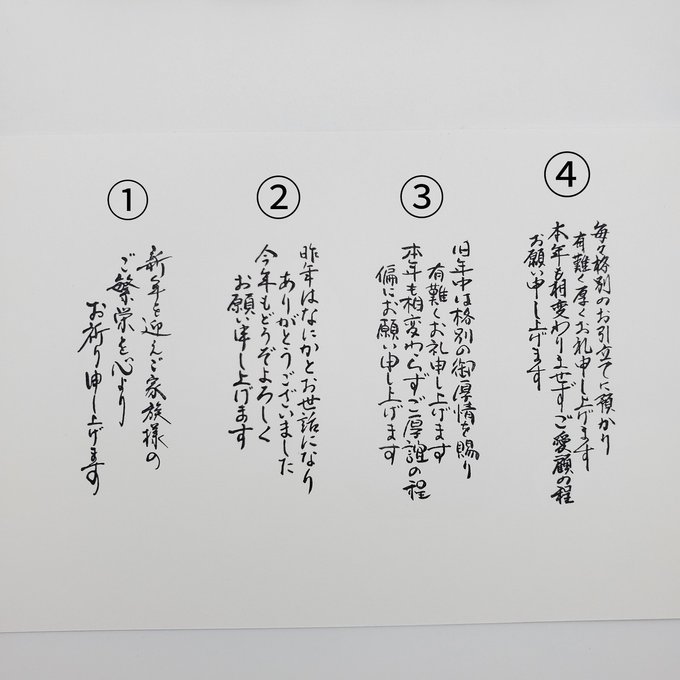 ①
新年を迎えご家族様の
ご繁栄を心より
お祈り申し上げます
②
昨年はなにかとお世話になり
ありがとうございました
今年もどうぞよろしく
お願い申し上げます
③
旧年中は格別の御厚情を賜り
有難くお礼申し上げます
本年も相変わらずご厚誼の程
偏にお願い申し上げます
④
毎々格別のお引立てに預かり
有難く厚くお礼申し上げます
本年も相変わりませずご愛顧の程
お願い申し上げます